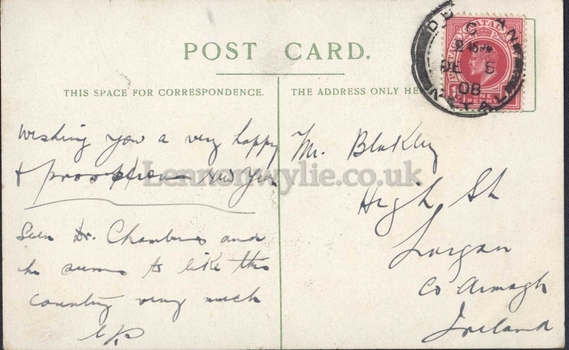 POST CARD.
THIS SPACE FOR CORRESPONDENCE.
THE ADDRESS ONLY HE
Wishing you a very happy
& new year
Seen Dr. Chambers and
he seems to like this
country very much
Mr. Blakley
High St
Lurgan
Co Armagh
Ireland
DE 5
08
NATAL
Lennonwylie.co.uk